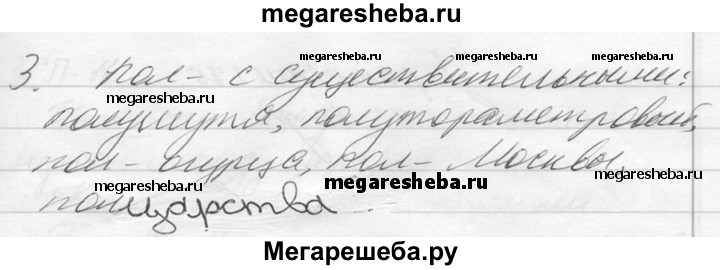 megaresheba.ru
3. пол- с существительными:
megaresheba.ru
megaresheba.ru
megaresheba.ru
полушутя, полутораметровый,
пол-огурца, пол-Москвы,
megaresheba.ru
megaresheba.ru
megaresheba.ru
полцарства.
Мегарешеба.ру